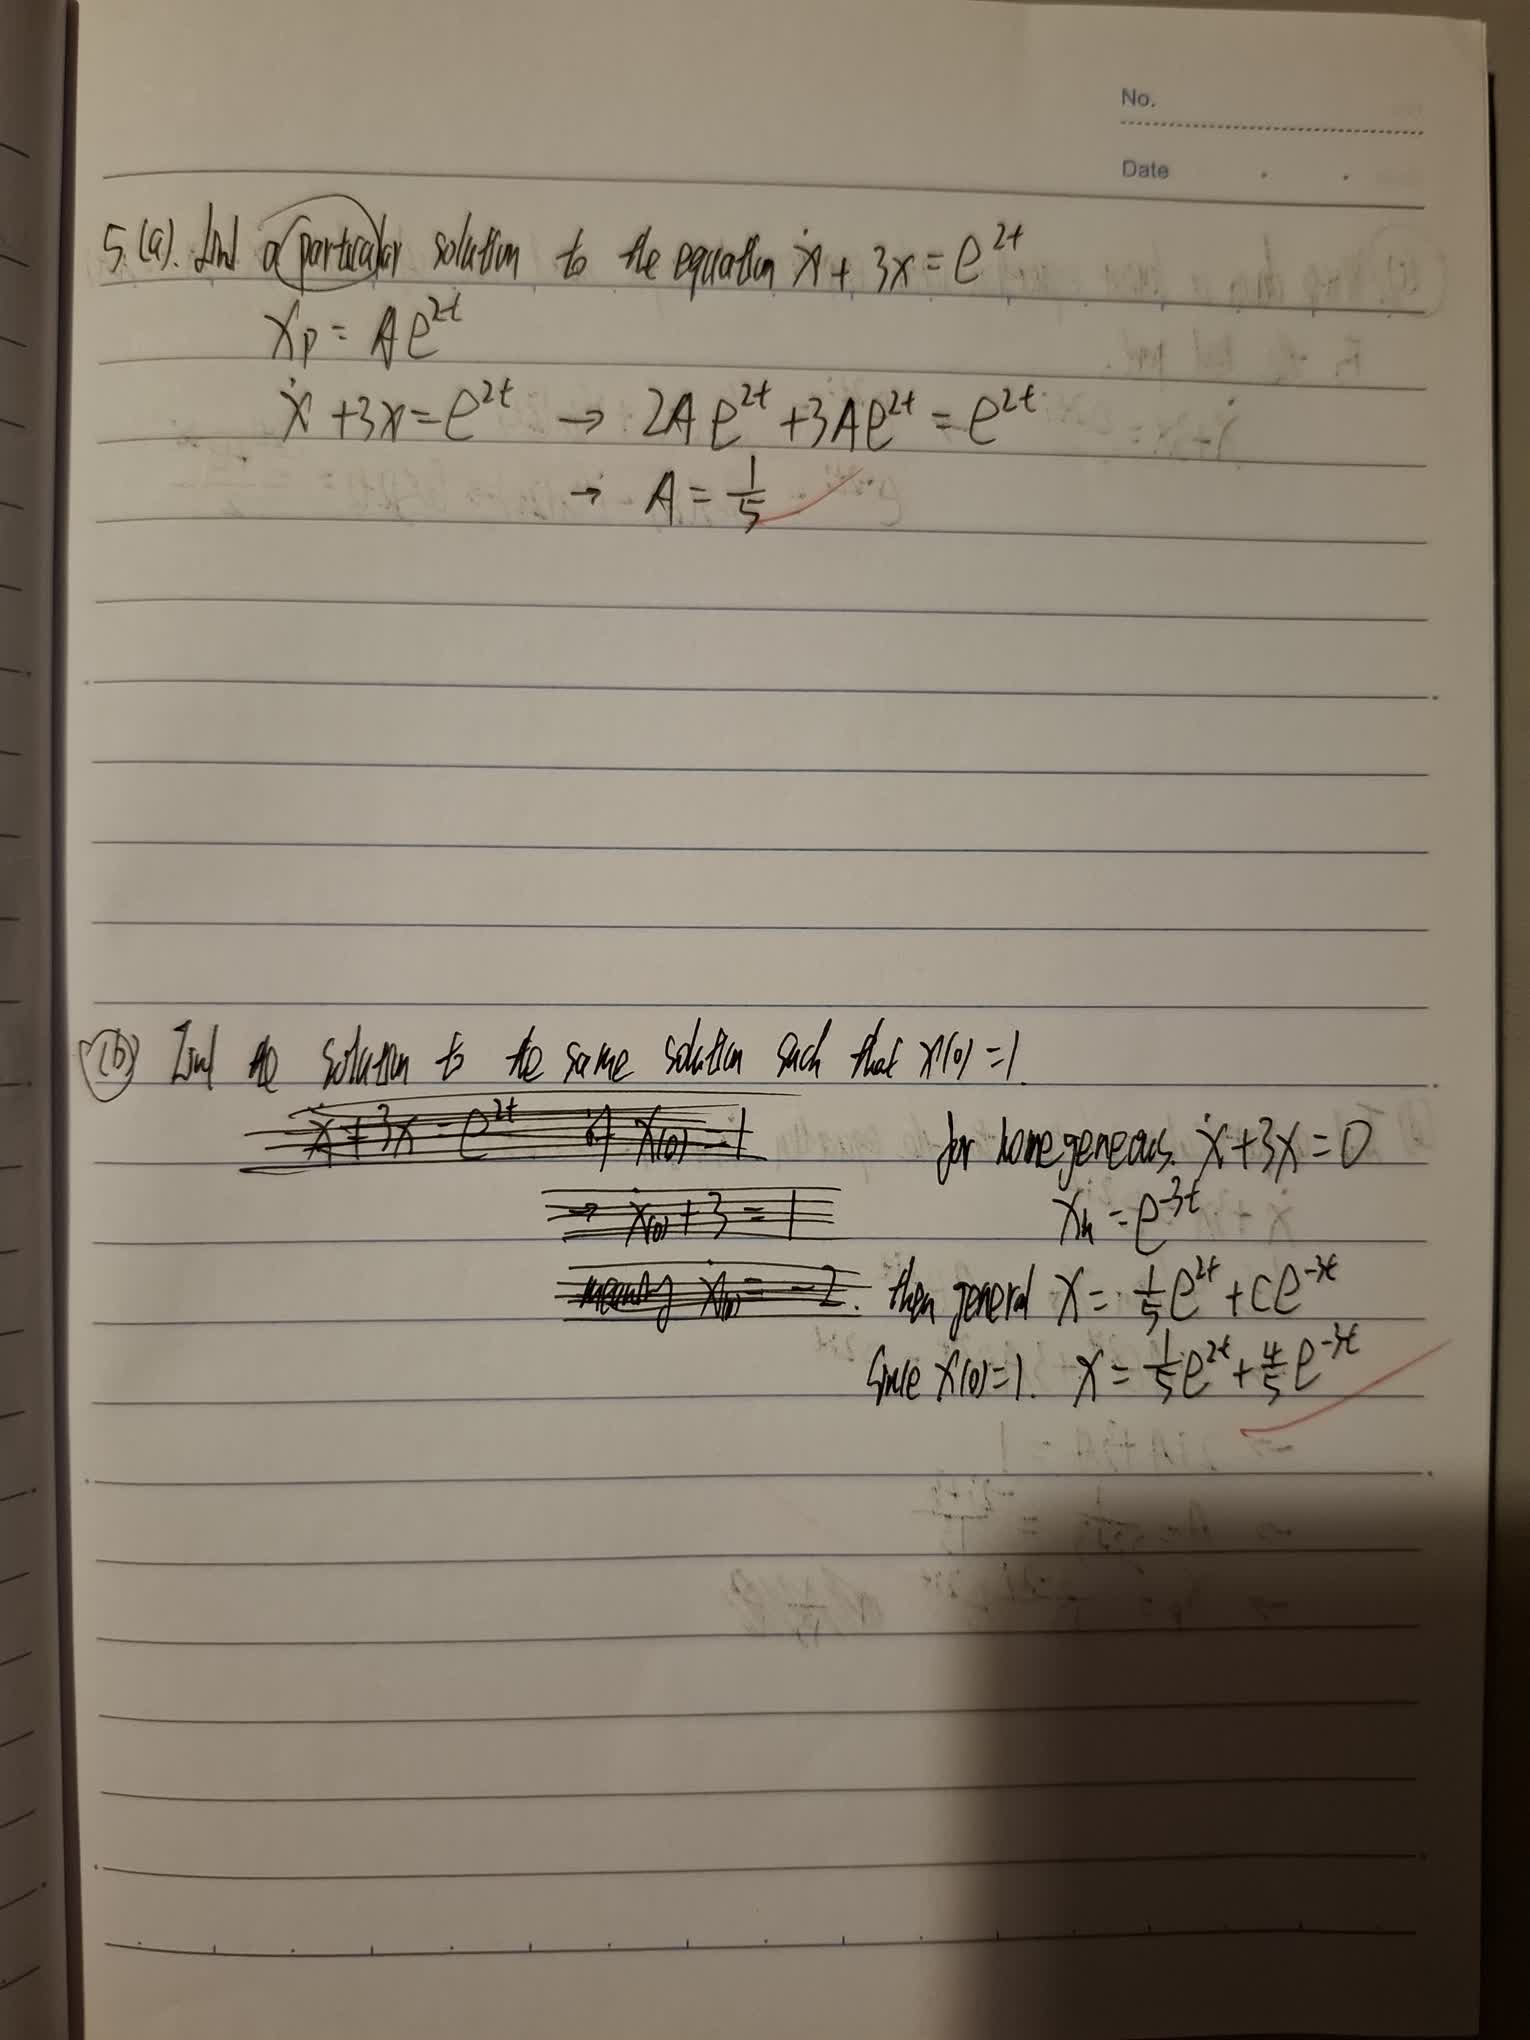 No.
Date
5.(a). Find a particular solution to the equation ẋ + 3x = e^{2t}
x_p = Ae^{2t}
ẋ + 3x = e^{2t} → 2Ae^{2t} + 3Ae^{2t} = e^{2t}
→ A = 1/5
(b) Find the solution to the same solution such that x(0) = 1.
ẋ + 3x = e^{2t} if x(0) = 1
for homogeneous. ẋ + 3x = 0
→ ẋ(0) + 3 = 1
x_h = e^{-3t}
meaning ẋ(0) = -2.
then general x = 1/5 e^{2t} + ce^{-3t}
Since x(0) = 1. x = 1/5 e^{2t} + 4/5 e^{-3t}